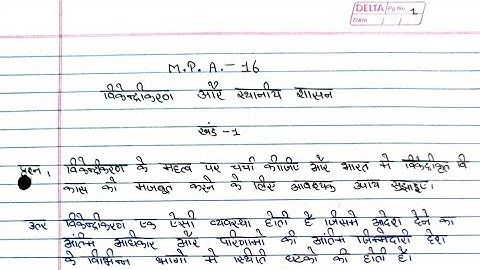 DELTA Pg No. 1
Date / /
M.P.A.-16
विकेन्द्रीकरण और स्थानीय शासन
खंड-1
प्रश्न 1 विकेन्द्रीकरण के महत्व पर चर्चा कीजिए और भारत में विकेंद्रीकृत वि
कास को मजबूत करने के लिए आवश्यक उपाय सुझाइए।
उत्तर विकेन्द्रीकरण एक ऐसी व्यवस्था होती है जिसमे आदेश देने का
अंतिम अधिकार और परिणामो की अंतिम जिम्मेदारी देश
के विभिन्न भागो मे स्थित घटको की होती है।